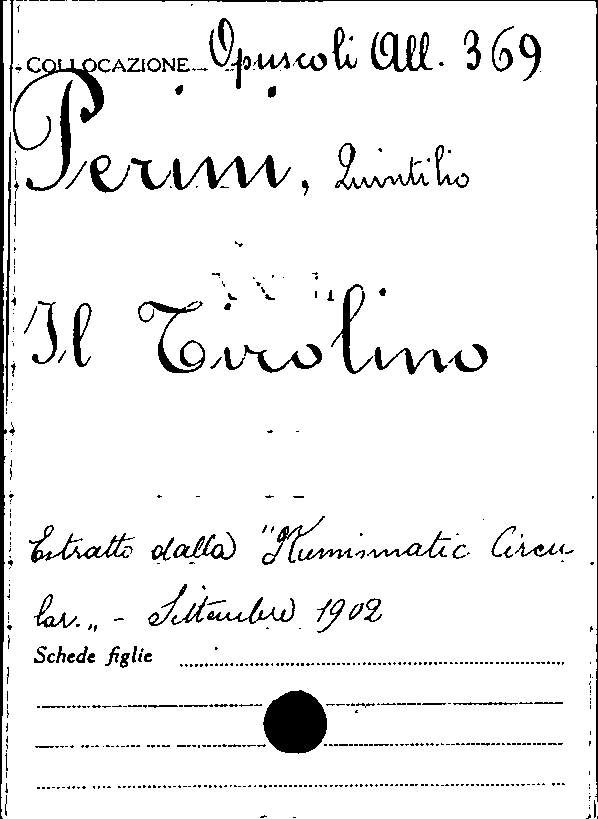 COLLOCAZIONE Opuscoli All. 369
Perini, Quintilio
Il Tirolino
Estratto dalla "Numismatic Circu
lar.„ - Settembre 1902
Schede figlie